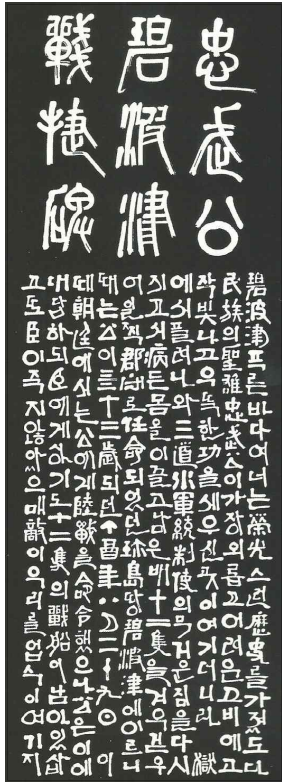 忠武公
碧波津
戰捷碑
碧波津푸른바다여너는榮光스런歷史를가졌도다
民族의聖雄忠武公이가장외롭고어려운고비에고
작빛나고우뚝한功을세우신곳이여기더니라 獄
에서풀려나와三道水軍統制使의무거운짐을다시
지고서病든몸을이끌고남은배十二隻을겨우거두
어일찍郡守로任命되었던珍島땅碧波津에이르니
때는公이五十三歲되던丁酉年八月二十九日 이
때朝廷에서는公에게陸戰을命令했으나公은이에
대답하되臣에게아직도十二隻의戰船이남아있삽
고또臣이죽지않았으매敵이우리를업수이여기지